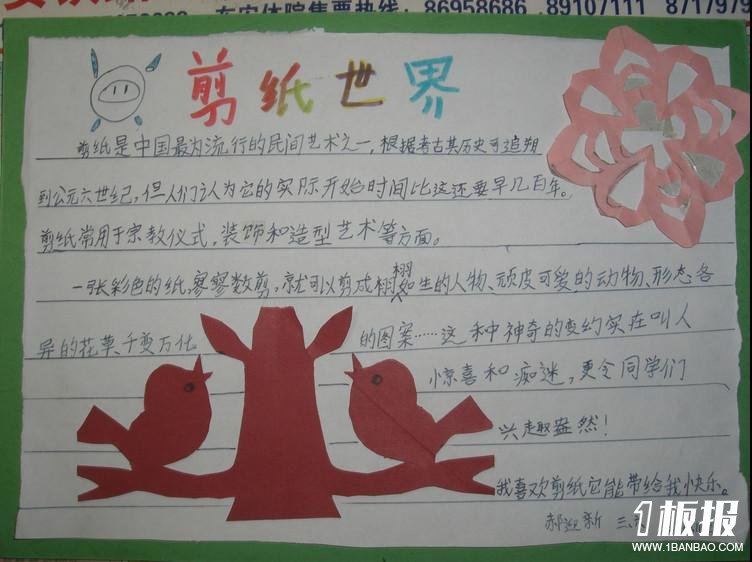 东安体院售票热线：86958686 89107111 8717979
剪纸世界
剪纸是中国最为流行的民间艺术之一，根据考古其历史可追朔
到公元六世纪，但人们认为它的实际开始时间比这还要早几百年。
剪纸常用于宗教仪式，装饰和造型艺术等方面。
一张彩色的纸，寥寥数剪，就可以剪成栩栩如生的人物、顽皮可爱的动物、形态各
异的花草、千变万化的图案……这种神奇的变幻实在叫人
惊喜和痴迷，更令同学们
兴趣盎然！
我喜欢剪纸它能带给我快乐。
郝迎新 三
1板报
WWW.1BANBAO.COM